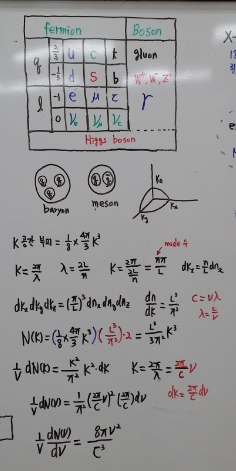 fermion Boson
q 2/3 u c t gluon
-1/3 d s b W⁺ W⁻, Z°
l -1 e μ τ γ
0 νe νμ ντ
Higgs boson
q q q q q̄
baryon meson
Kz
Ky Kx
K 공간 부피 = 1/8 × 4π/3 K³
mode 수
K = 2π/λ λ = 2L/n K = 2π/(2L/n) = nπ/L dKz = π/L dnz
dKx dKy dKz = (π/L)³ dnx dny dnz dn/dk = L³/π³ c = νλ
λ = c/ν
N(K) = (1/8 × 4π/3 K³)(L³/π³)·2 = L³/3π² K³
1/V dN(K) = K²/π² K²·dK K = 2π/λ = 2π/c ν
dK = 2π/c dν
1/V dN(ν) = 1/π² (2π/c ν)² (2π/c) dν
1/V dN(ν)/dν = 8πν²/C³
X-